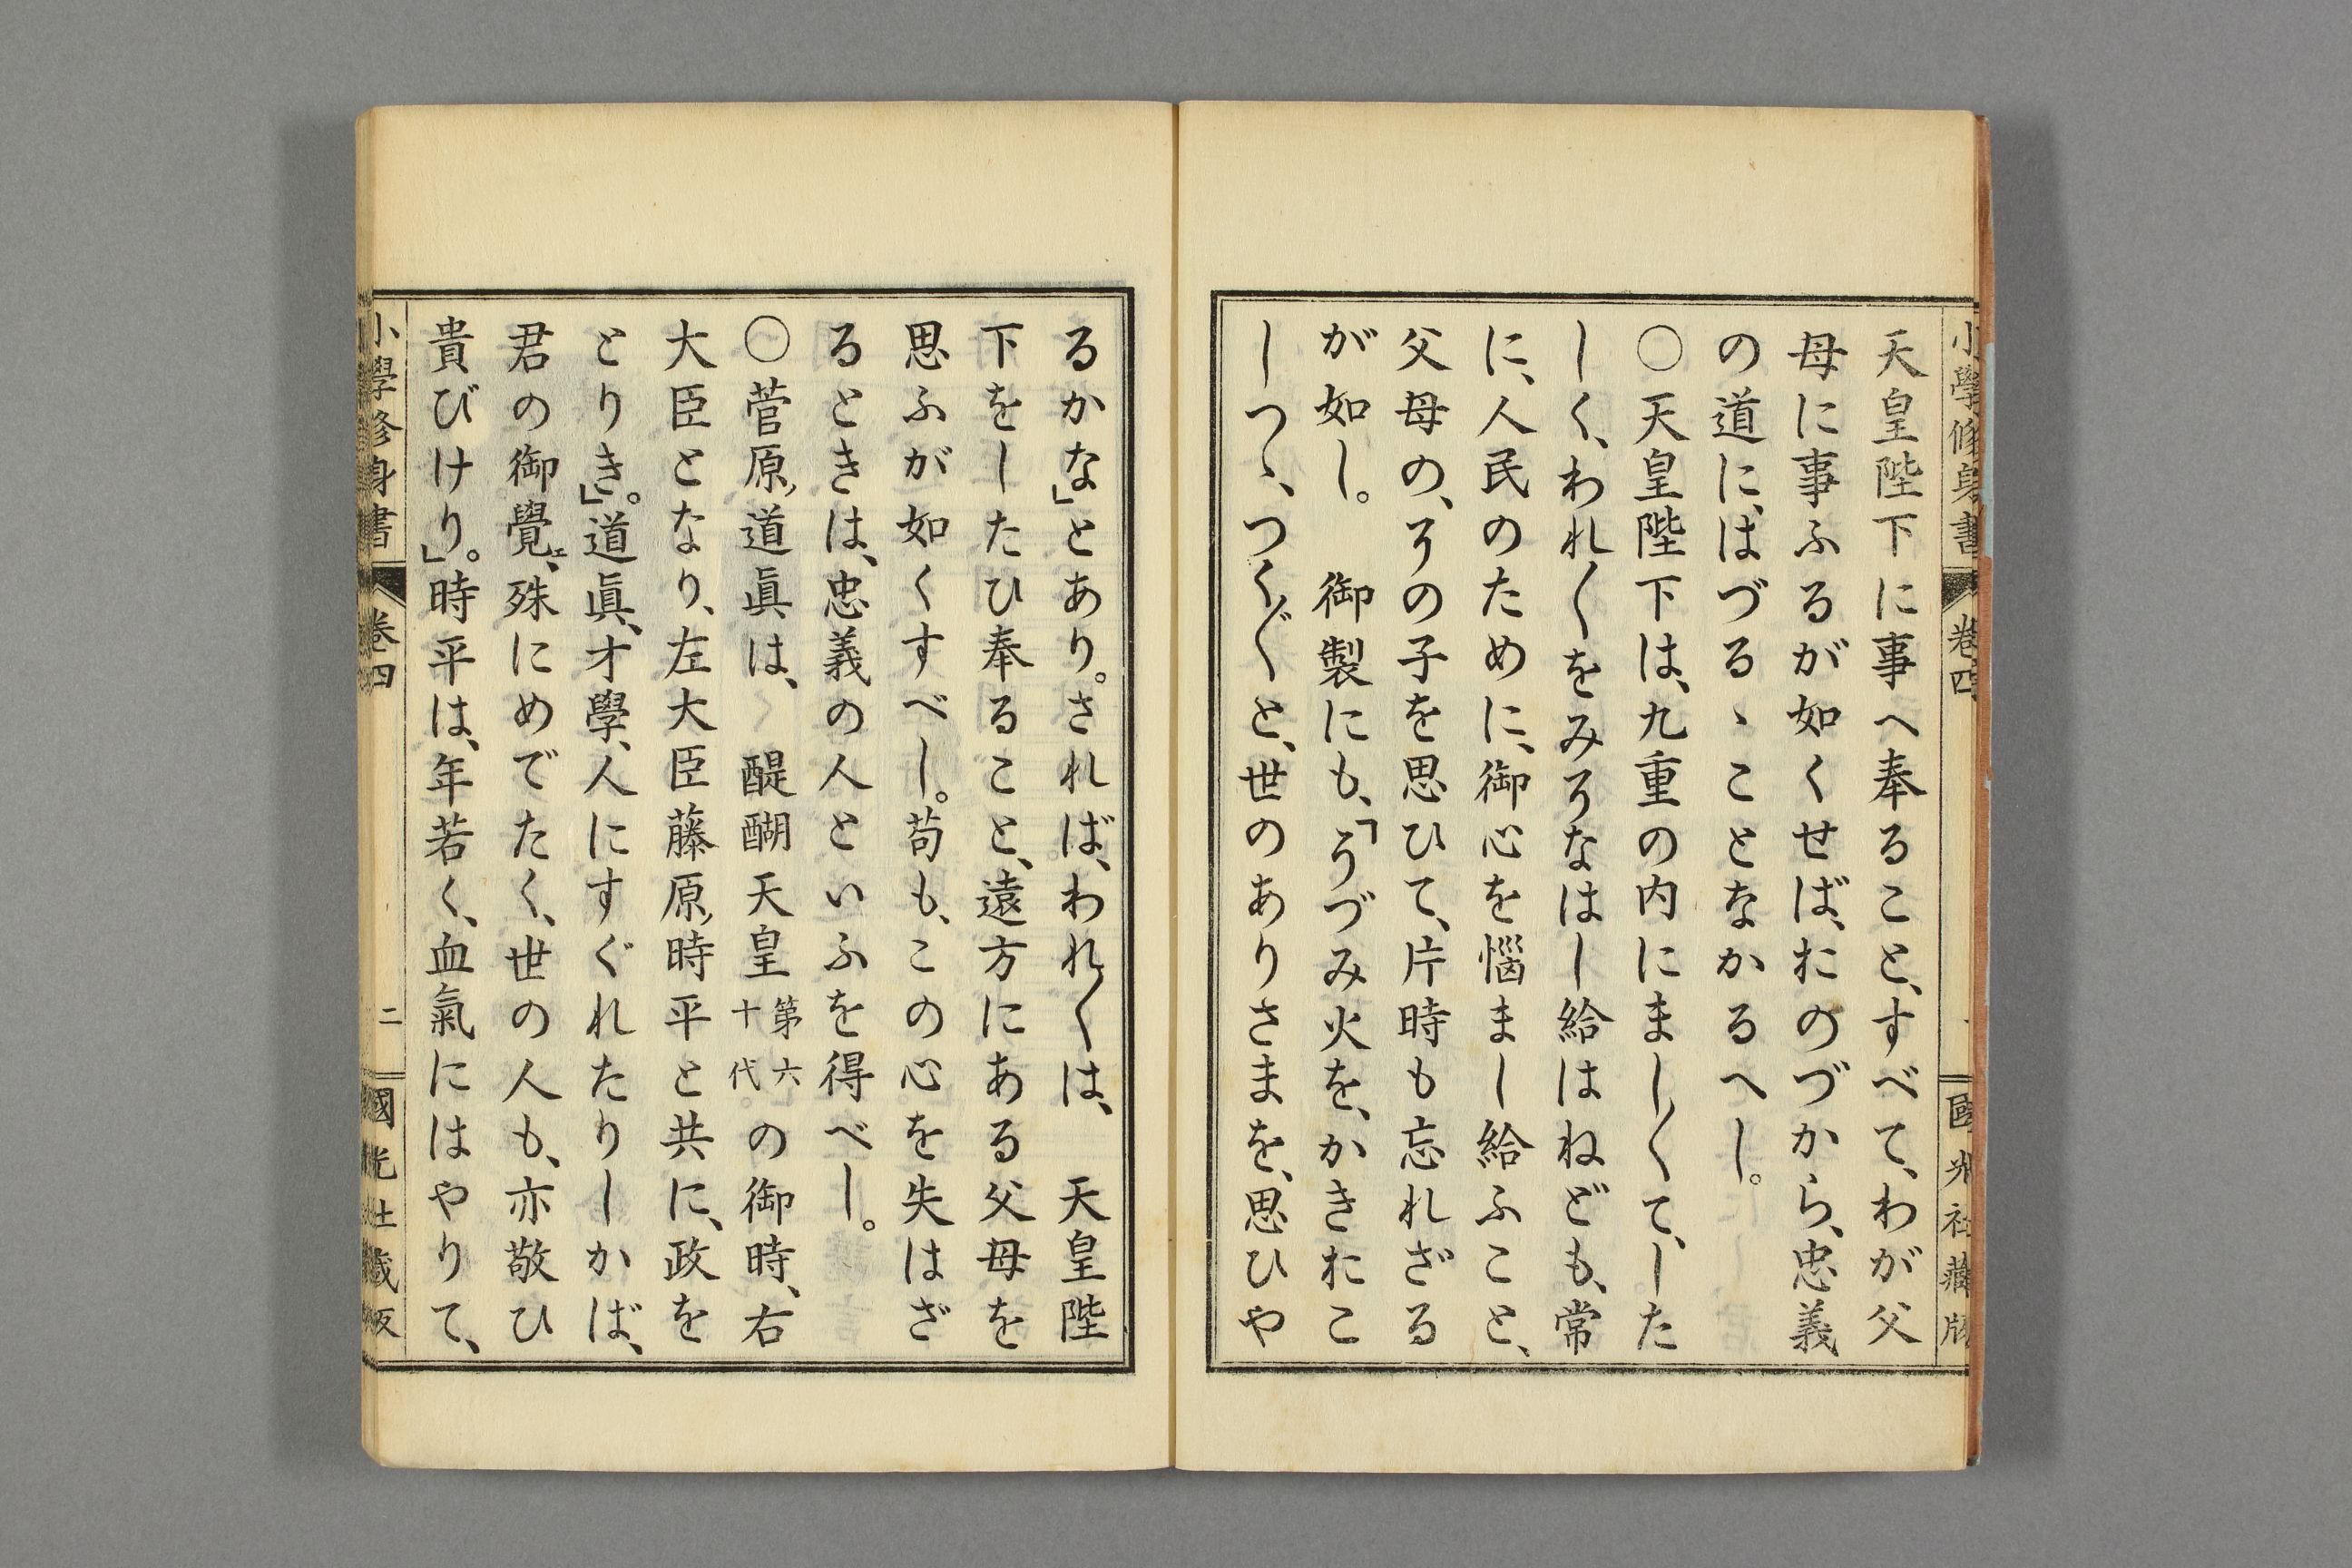 小學修身書 卷四 國光社藏版
天皇陛下に事へ奉ること、すべて、わが父
母に事ふるが如くせば、おのづから、忠義
の道に、はづるゝことなかるべし。
〇天皇陛下は、九重の内にまし〱て、した
しく、われ〱をみそなはし給はねども、常
に、人民のために、御心を惱まし給ふこと、
父母の、その子を思ひて、片時も忘れざる
が如し。　御製にも、「うづみ火を、かきおこ
しつゝ、つく〲と、世のありさまを、思ひや
るかな」とあり。されば、われ〱は、　天皇陛
下をしたひ奉ること、遠方にある父母を
思ふが如くすべし。苟も、この心を失はざ
るときは、忠義の人といふを得べし。
〇菅原ノ道眞は、　醍醐天皇第六十代。の御時、右
大臣となり、左大臣藤原ノ時平と共に、政を
とりき。」道眞、才學、人にすぐれたりしかば、
君の御覺エ、殊にめでたく、世の人も、亦敬ひ
貴びけり。」時平は、年若く、血氣にはやりて、
小學修身書 卷四 二 國光社藏版